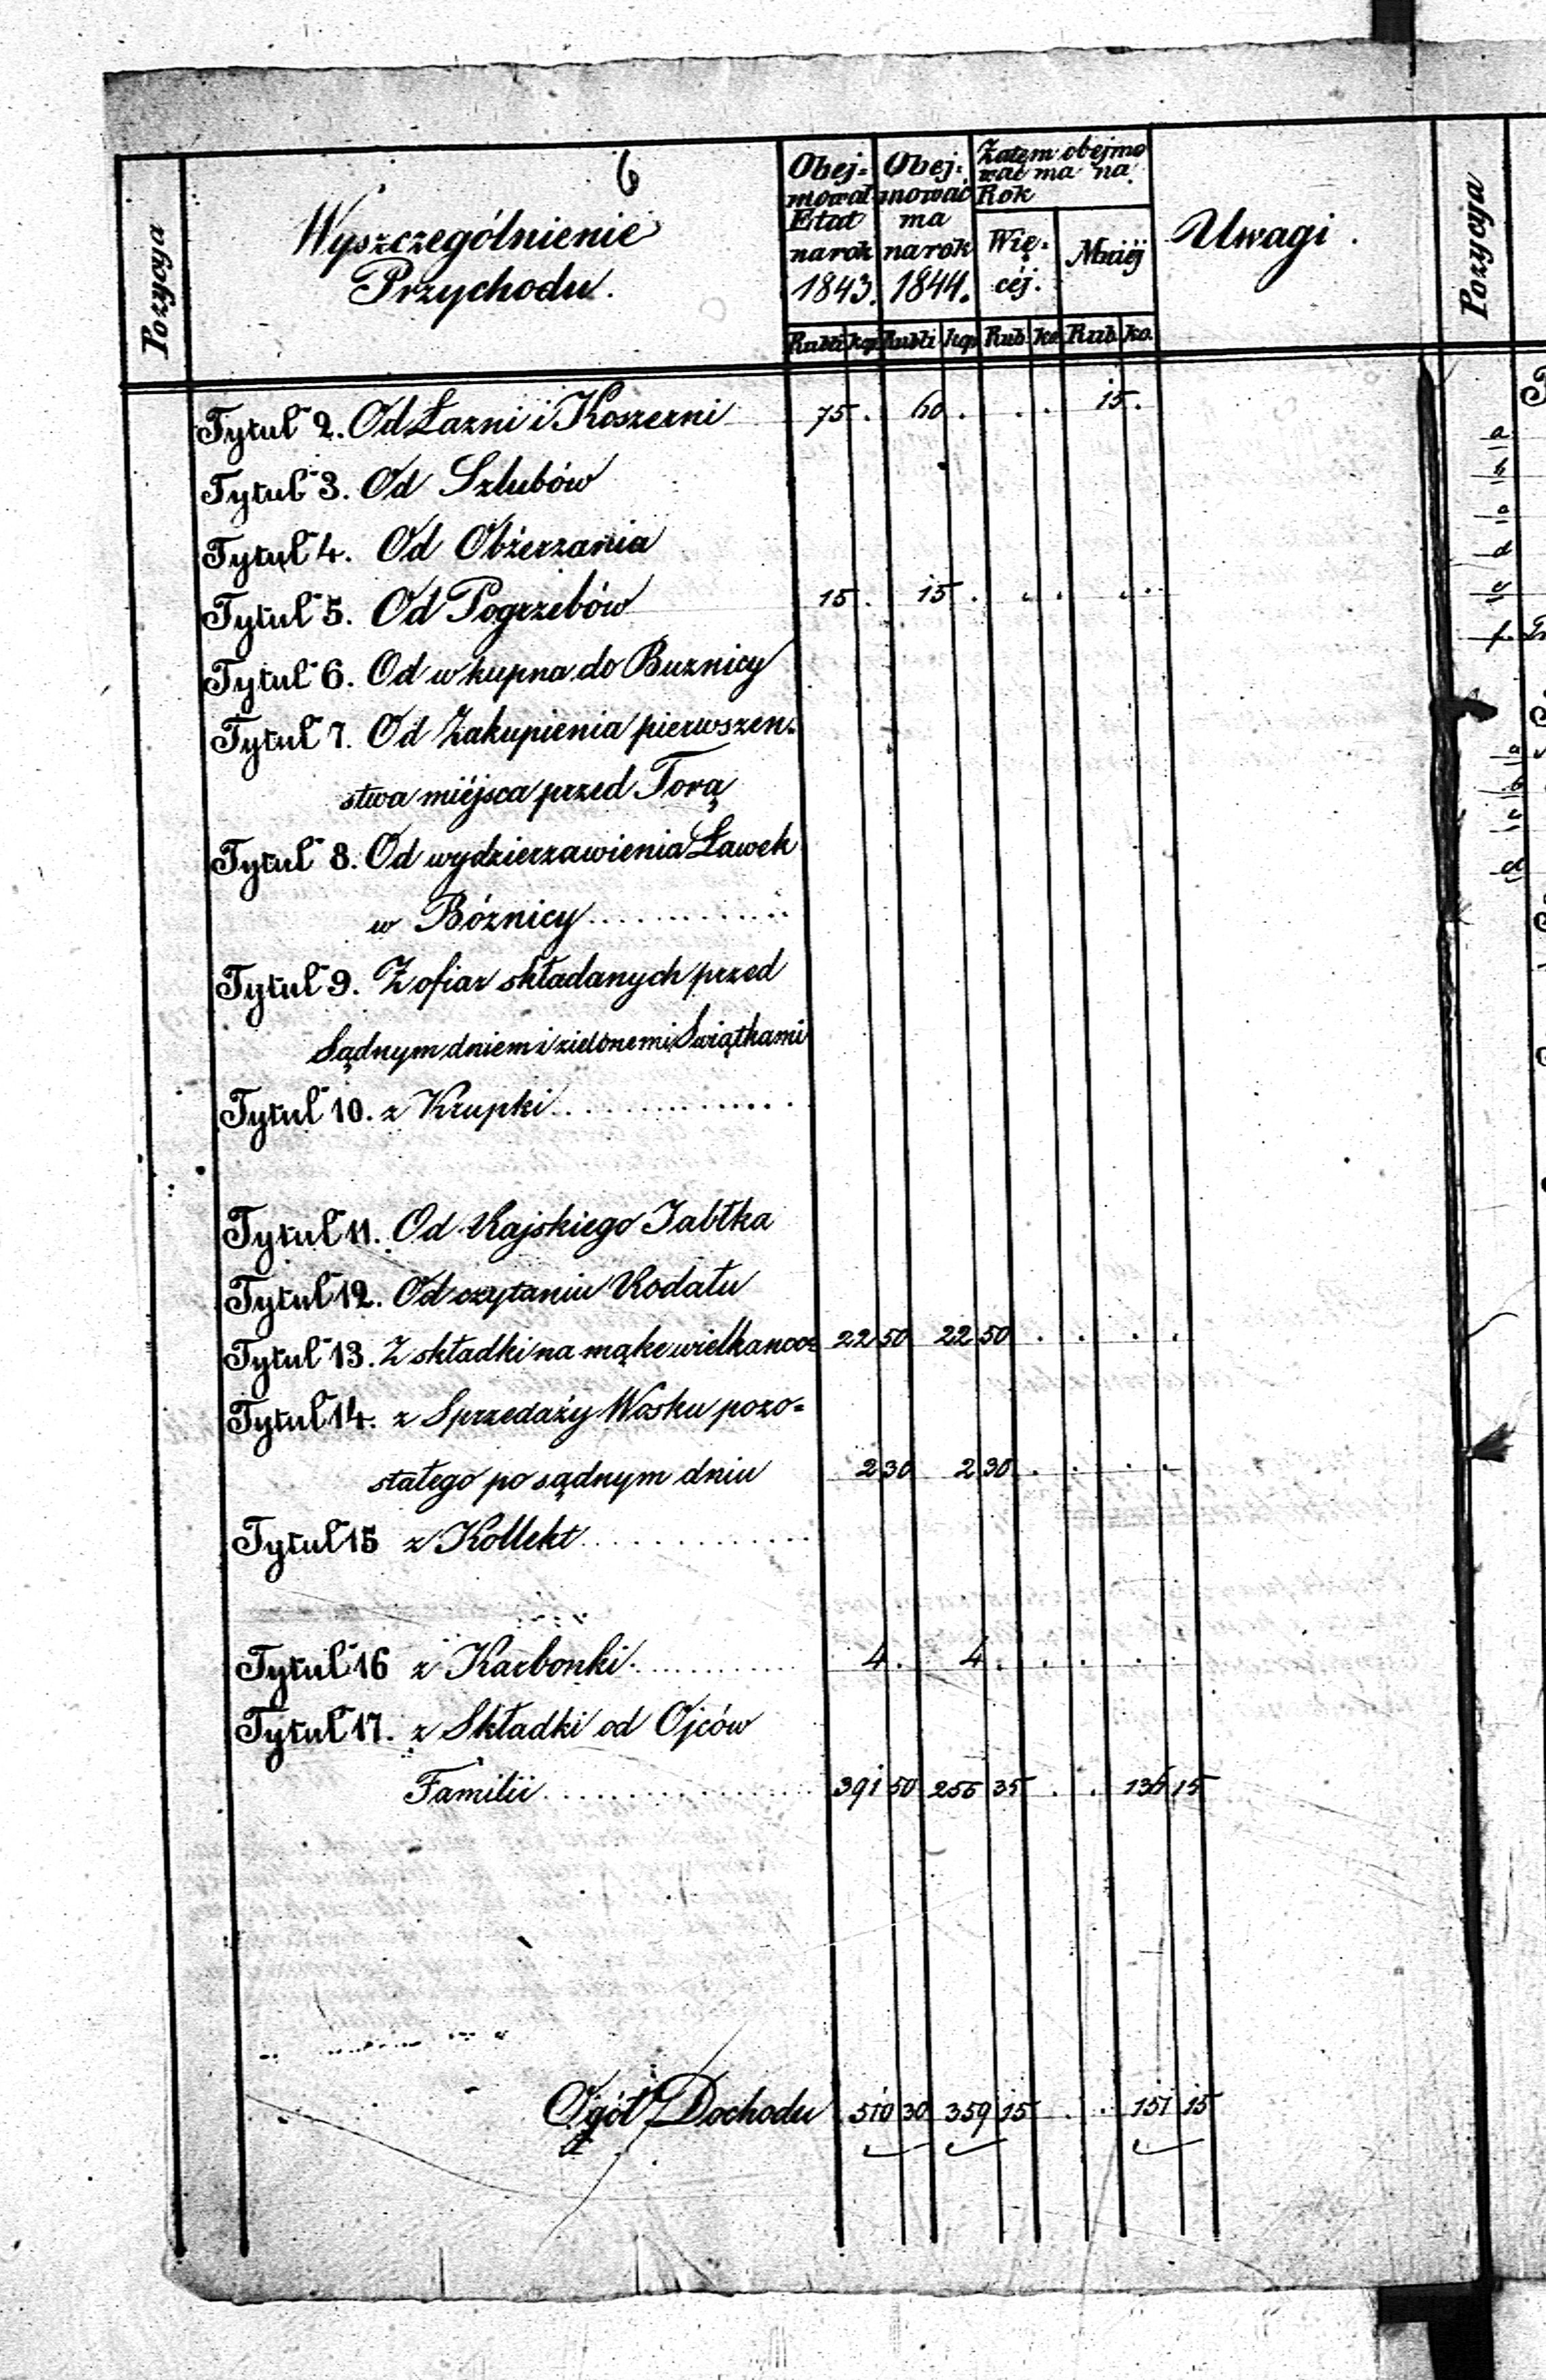 6
Pozycya
Wyszczególnienie
Przychodu.
Obej=
mował
Etat
na rok
1843.
Obej=
mować
ma
na rok
1844.
Zatem obejmo
wać ma na
Rok
Wię=
céj.
Mniéj
Uwagi.
Pozycya
Rubli kop Rubli kop Rub. ko Rub. ko.
Tytuł 2. Od Łazni i Koszerni 75 . 60 . . . 15 .
Tytuł 3. Od Szlubów
Tytuł 4. Od Obżerzania
Tytuł 5. Od Pogrzebów 15 . 15 . . . . .
Tytuł 6. Od wkupna do Buznicy
Tytuł 7. Od Zakupienia pierwszen=
stwa miéjsca przed Torą
Tytuł 8. Od wydzierzawienia Ławek
w Bóżnicy
Tytuł 9. Z ofiar składanych przed
Sądnym dniem i zielonemi Swiątkami
Tytuł 10. z Krupki
Tytuł 11. Od Rajskiego Jabłka
Tytuł 12. Od czytaniu Rodału
Tytuł 13. Z składki na mąke wielkanoc 22 50 22 50 . . . .
Tytuł 14. z Sprzedaży Wosku pozo=
stałego po sądnym dniu 2 30 2 30 . . . .
Tytuł 15 z Kollekt
Tytuł 16 z Karbonki 4 . 4 . . . . .
Tytuł 17. z Składki od Ojców
Familii 391 50 255 35 . . 136 15
Ogół Dochodu 510 30 359 15 . . 151 15
a
b
c
d
e
f.
a
b
c
d